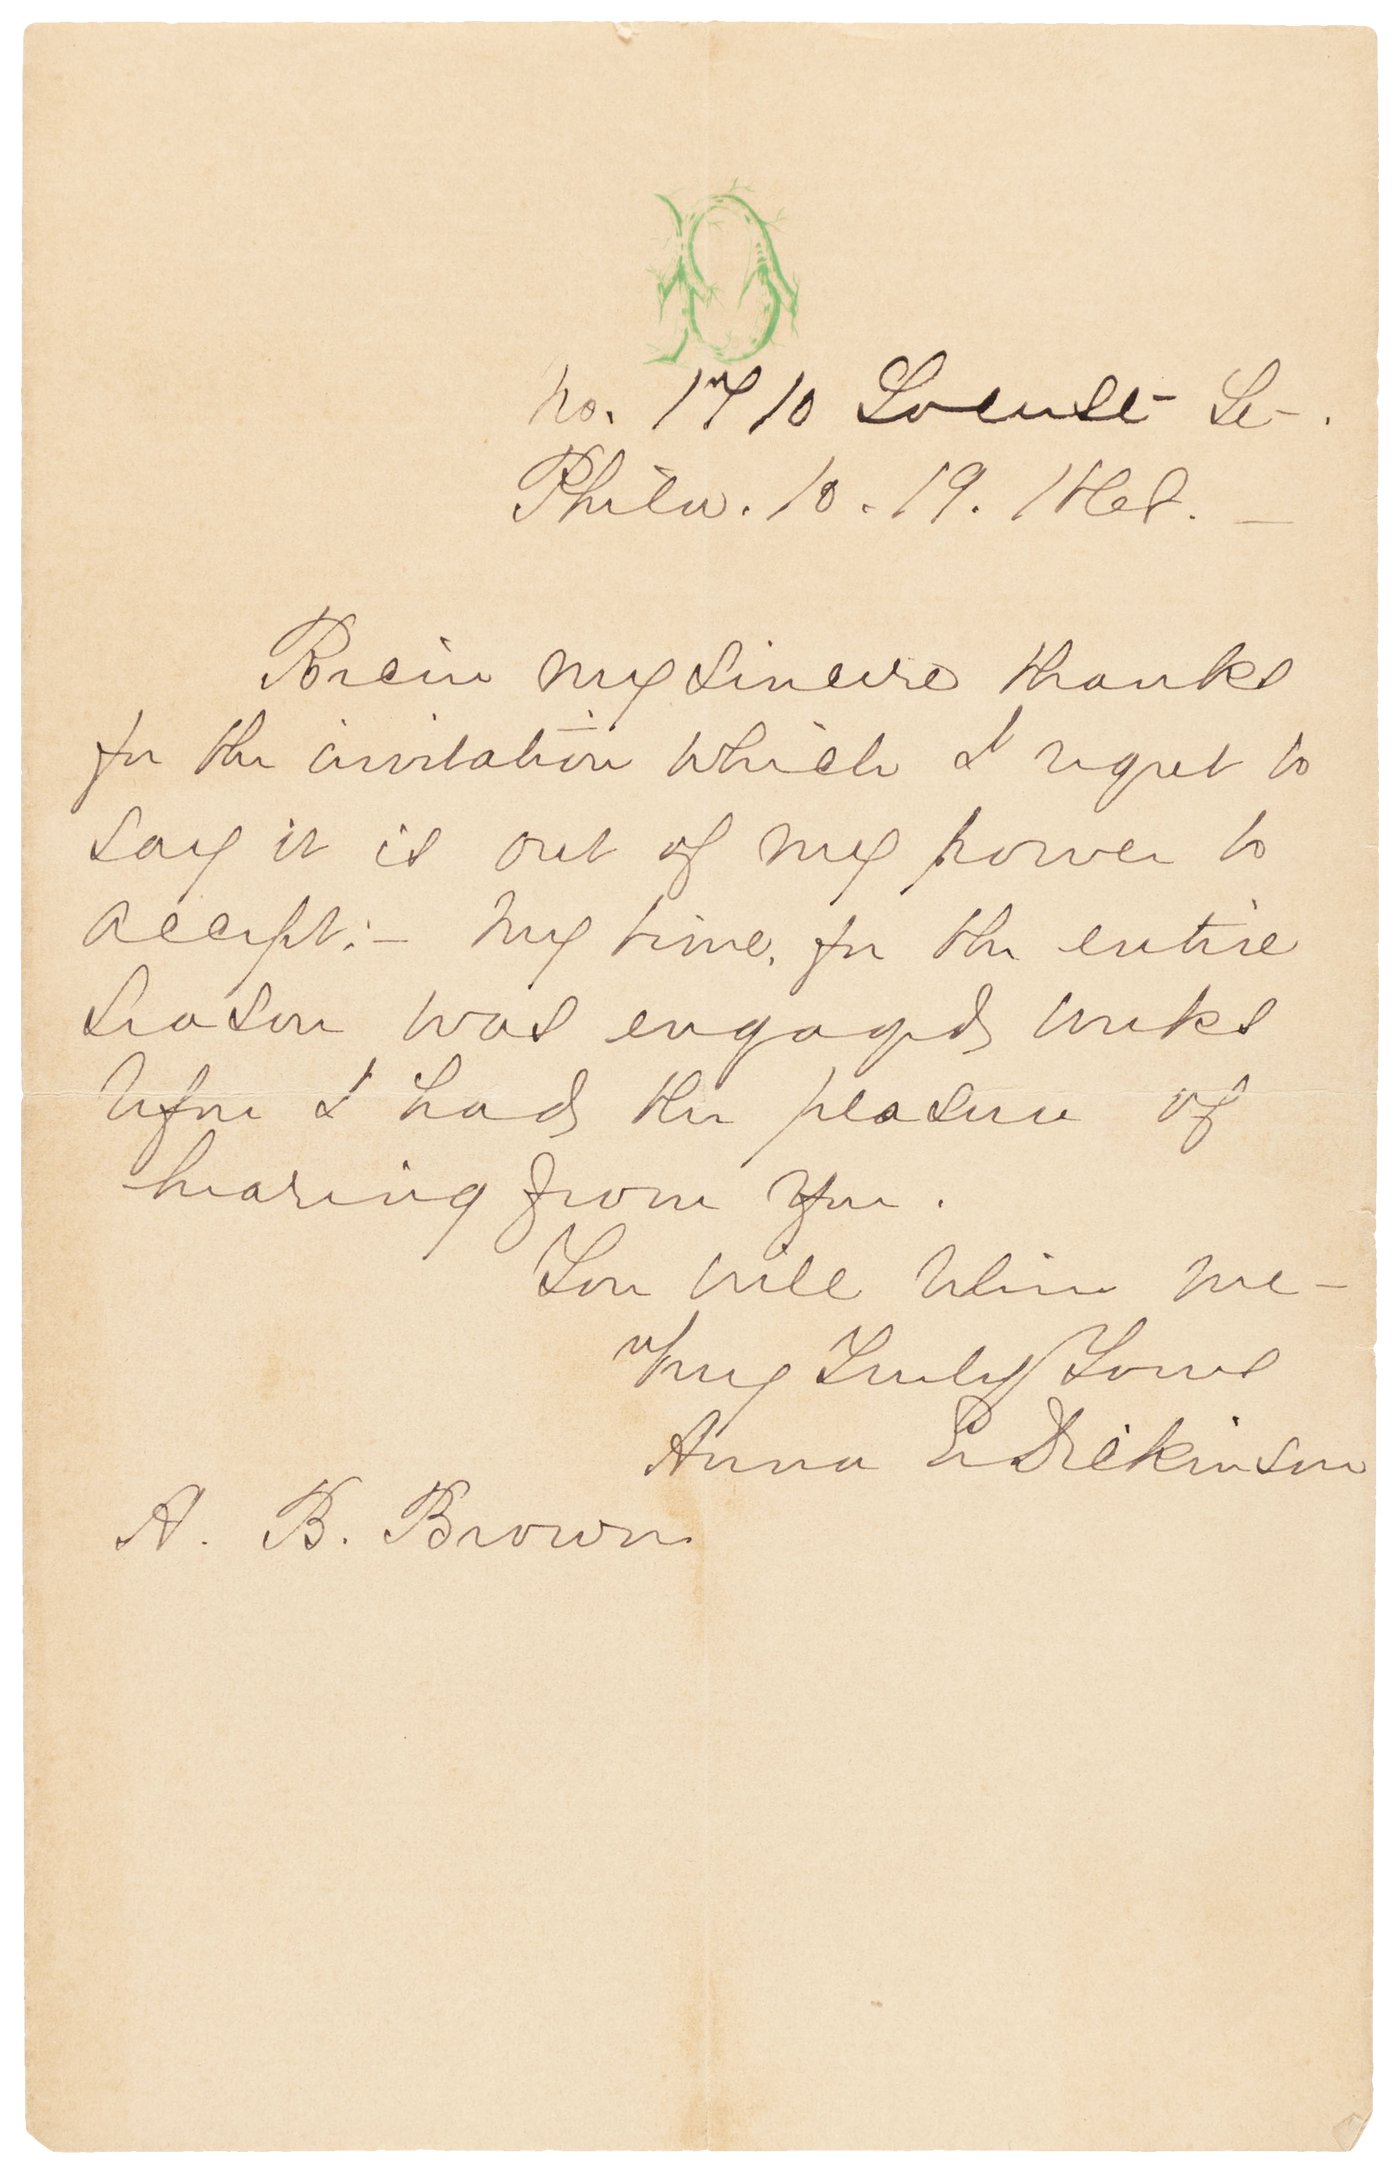 No. 1710 Locust St.
Phila. 10.19.1868. —
Receive my sincere thanks
for the invitation which I regret to
say it is out of my power to
accept: — My time, for the entire
season was engaged weeks
before I had the pleasure of
hearing from you.
You will believe me —
Very Truly Yours
Anna E Dickinson
A. B. Brown